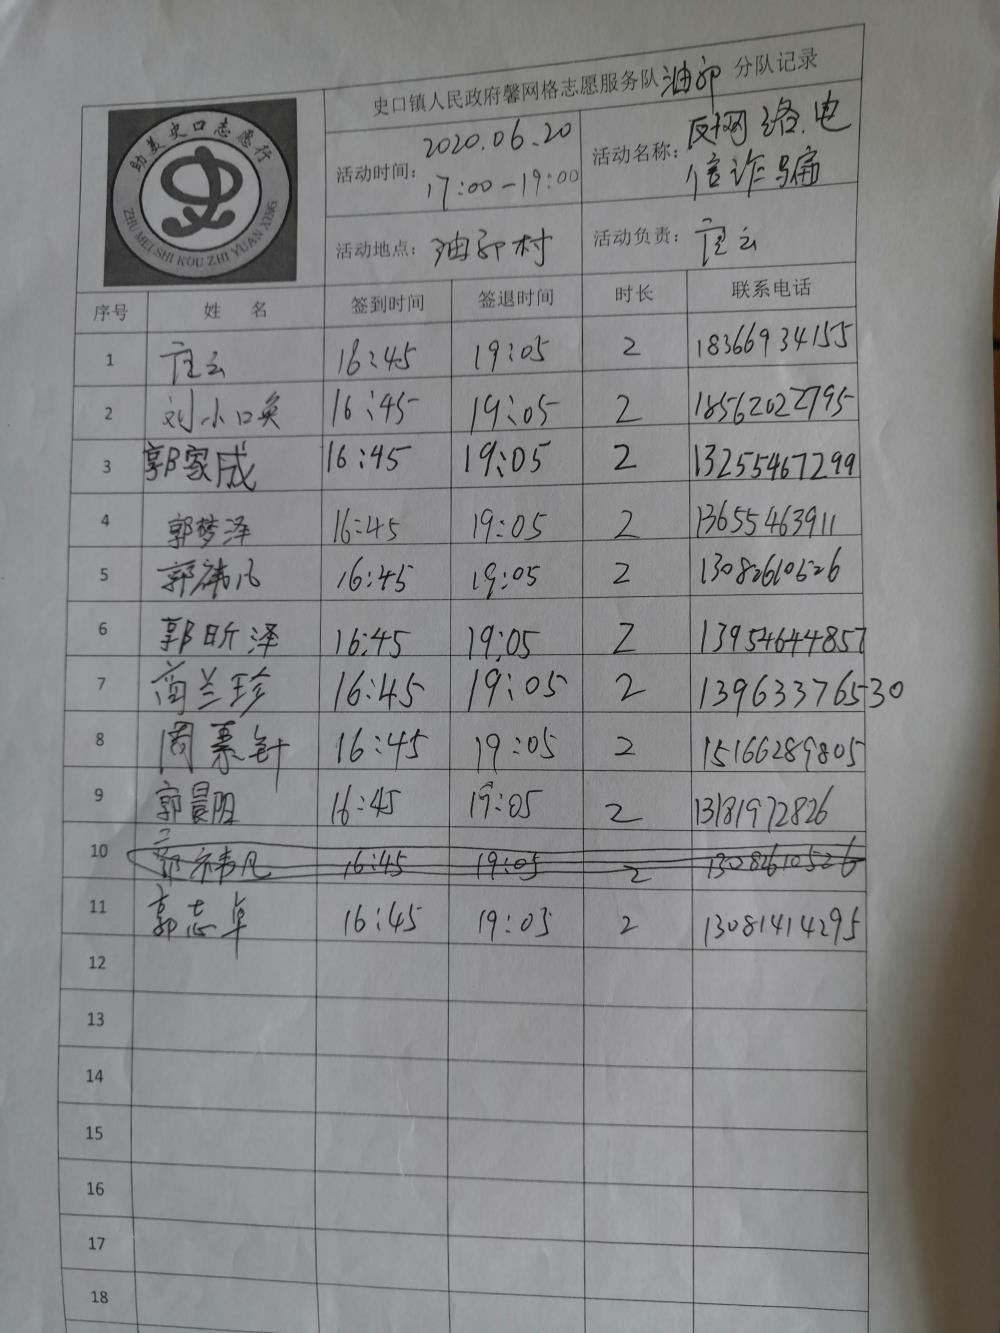 史口镇人民政府馨网格志愿服务队油郭 分队记录
助美史口志愿行
ZHU MEI SHI KOU ZHI YUAN XING
活动时间: 2020.06.20 17:00-19:00 活动名称: 反网络.电信诈骗
活动地点: 油郭村 活动负责:
序号 姓 名 签到时间 签退时间 时长 联系电话
1 16:45 19:05 2 18366934155
2 刘小口奂 16:45 19:05 2 18562022795
3 郭家成 16:45 19:05 2 13255467299
4 郭梦泽 16:45 19:05 2 13655463911
5 郭祎凡 16:45 19:05 2 13082610526
6 郭昕泽 16:45 19:05 2 13954644857
7 兰珍 16:45 19:05 2 13963376530
8 周 16:45 19:05 2 15166289805
9 郭晨阳 16:45 19:05 2 13181972826
10 祎凡 16:45 19:05 2 13082610526
11 郭志卓 16:45 19:05 2 13081414295
12
13
14
15
16
17
18